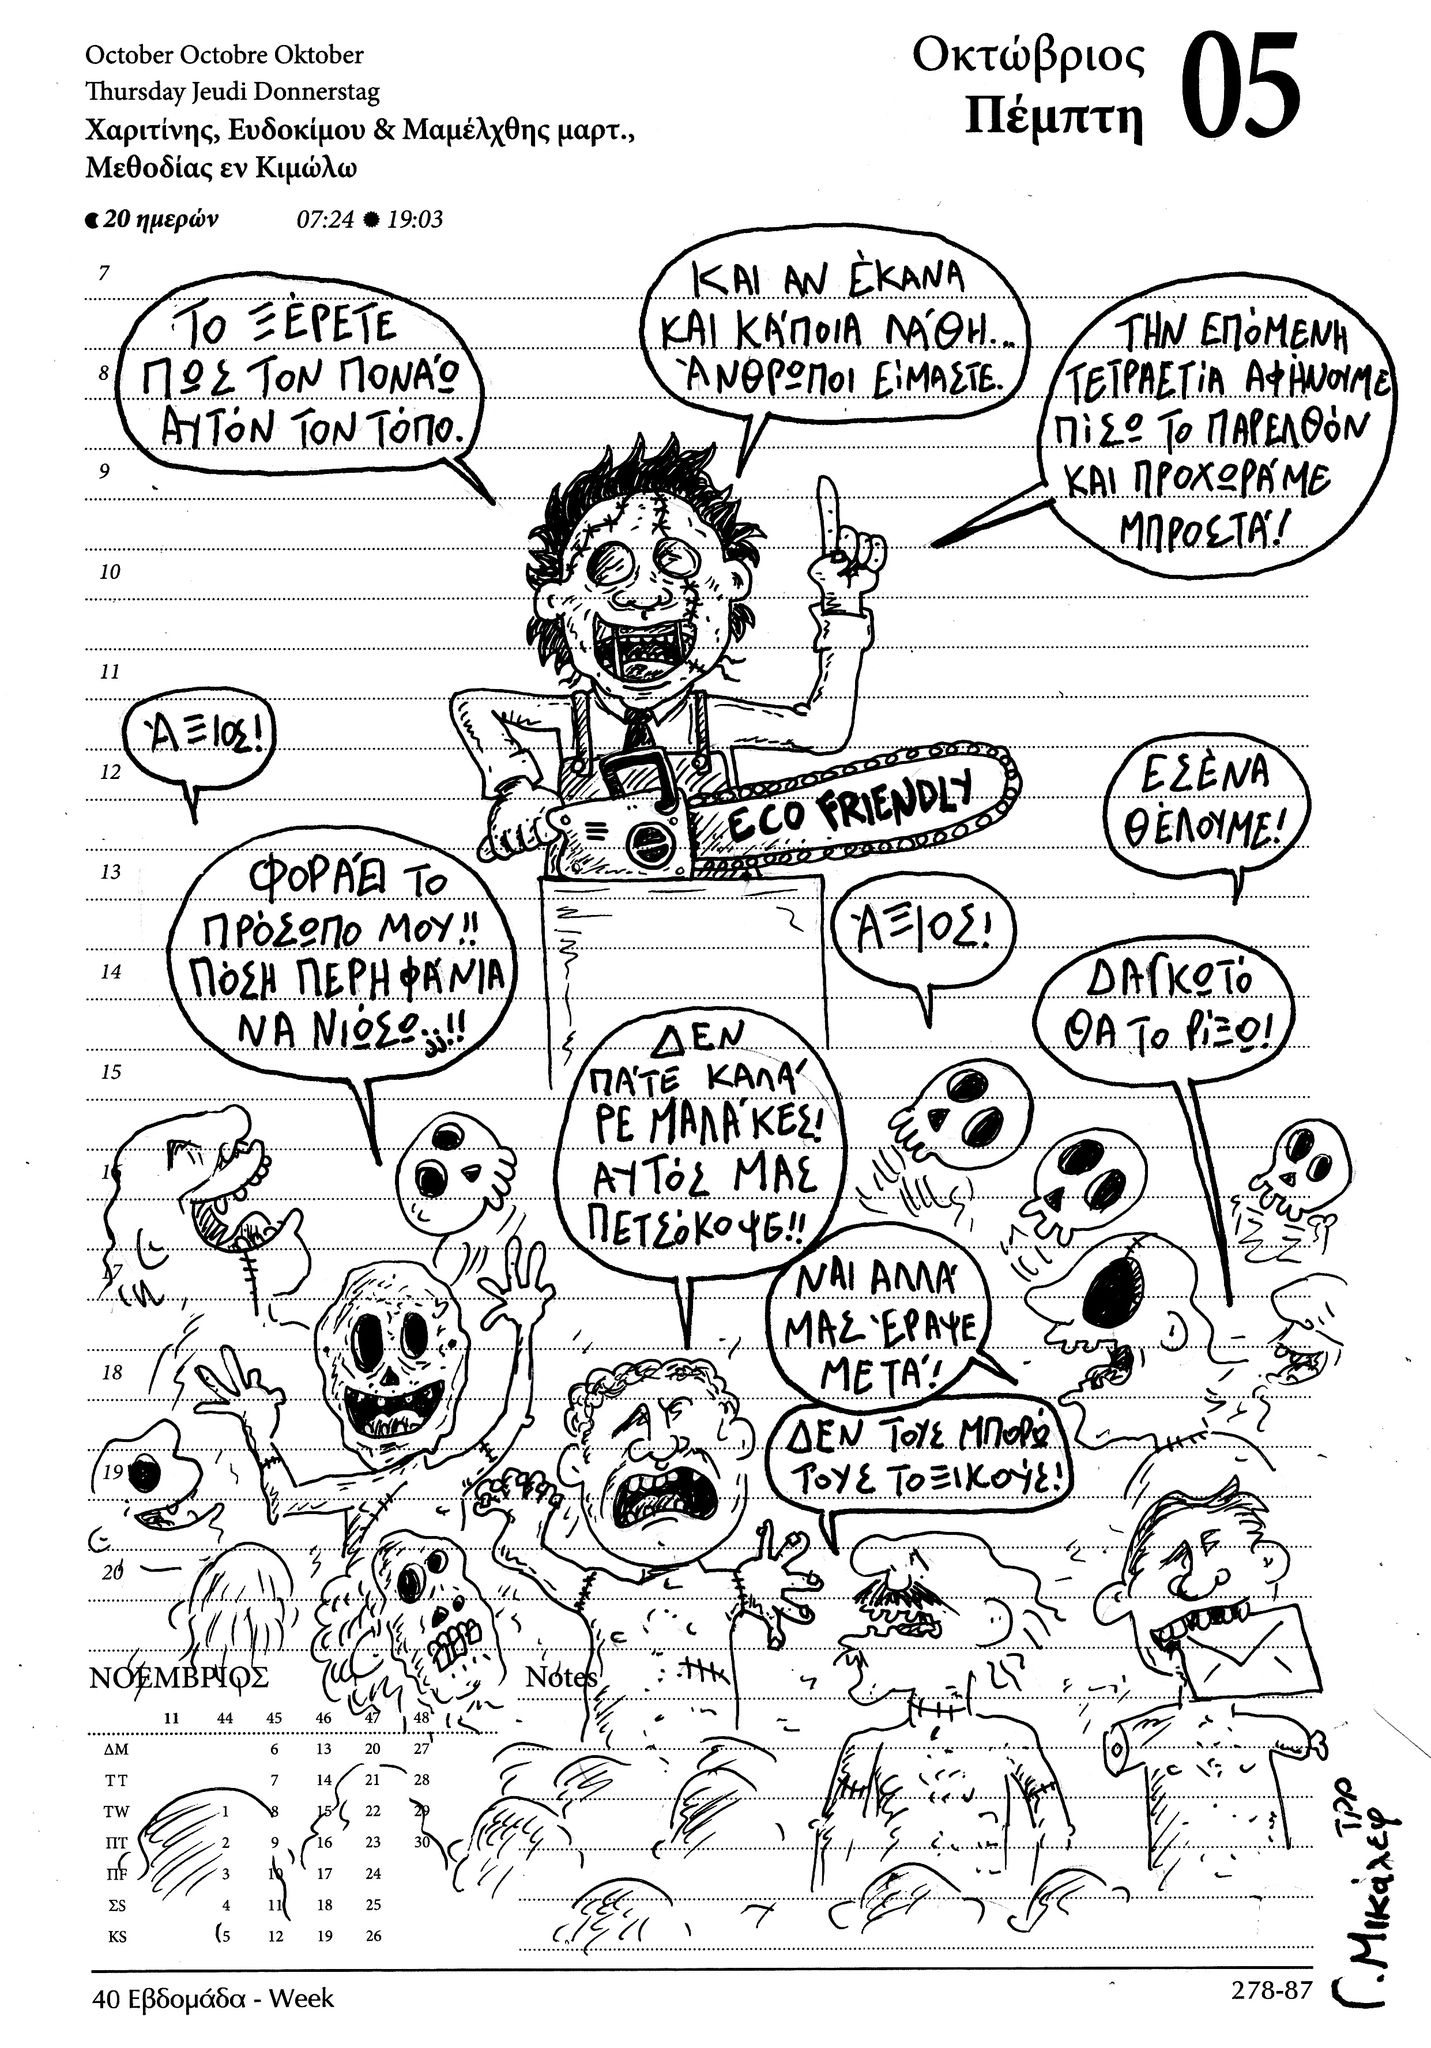 October Octobre Oktober
Thursday Jeudi Donnerstag
Χαριτίνης, Ευδοκίμου & Μαμέλχθης μαρτ.,
Μεθοδίας εν Κιμώλω
20 ημερών 07:24 19:03
Οκτώβριος
Πέμπτη
05
7
8
9
10
11
12
13
14
15
16
17
18
19
20
ΤΟ ΞΈΡΕΤΕ
ΠΩΣ ΤΟΝ ΠΟΝΆΩ
ΑΥΤΌΝ ΤΟΝ ΤΌΠΟ.
ΚΑΙ ΑΝ ΈΚΑΝΑ
ΚΑΙ ΚΆΠΟΙΑ ΛΆΘΗ...
ΆΝΘΡΩΠΟΙ ΕΊΜΑΣΤΕ.
ΤΗΝ ΕΠΌΜΕΝΗ
ΤΕΤΡΑΕΤΊΑ ΑΦΉΝΟΥΜΕ
ΠΊΣΩ ΤΟ ΠΑΡΕΛΘΌΝ
ΚΑΙ ΠΡΟΧΩΡΆΜΕ
ΜΠΡΟΣΤΆ!
ΆΞΙΟΣ!
ECO FRIENDLY
ΕΣΈΝΑ
ΘΈΛΟΥΜΕ!
ΦΟΡΆΕΙ ΤΟ
ΠΡΌΣΩΠΟ ΜΟΥ!!
ΠΌΣΗ ΠΕΡΗΦΆΝΙΑ
ΝΑ ΝΙΏΣΩ;;!!
ΆΞΙΟΣ!
ΔΑΓΚΩΤΌ
ΘΑ ΤΟ ΡΊΞΩ!
ΔΕΝ
ΠΆΤΕ ΚΑΛΆ
ΡΕ ΜΑΛΆΚΕΣ!
ΑΥΤΌΣ ΜΑΣ
ΠΕΤΣΌΚΟΨΕ!!
ΝΑΙ ΑΛΛΆ
ΜΑΣ ΈΡΑΨΕ
ΜΕΤΆ!
ΔΕΝ ΤΟΥΣ ΜΠΟΡΏ
ΤΟΥΣ ΤΟΞΙΚΟΎΣ!
ΝΟΕΜΒΡΙΟΣ
Notes
11 44 45 46 47 48
ΔΜ 6 13 20 27
ΤT 7 14 21 28
ΤW 1 8 15 22 29
ΠT 2 9 16 23 30
ΠF 3 10 17 24
ΣS 4 11 18 25
ΚS 5 12 19 26
40 Εβδομάδα - Week
278-87
Γ. Μικάλεφ